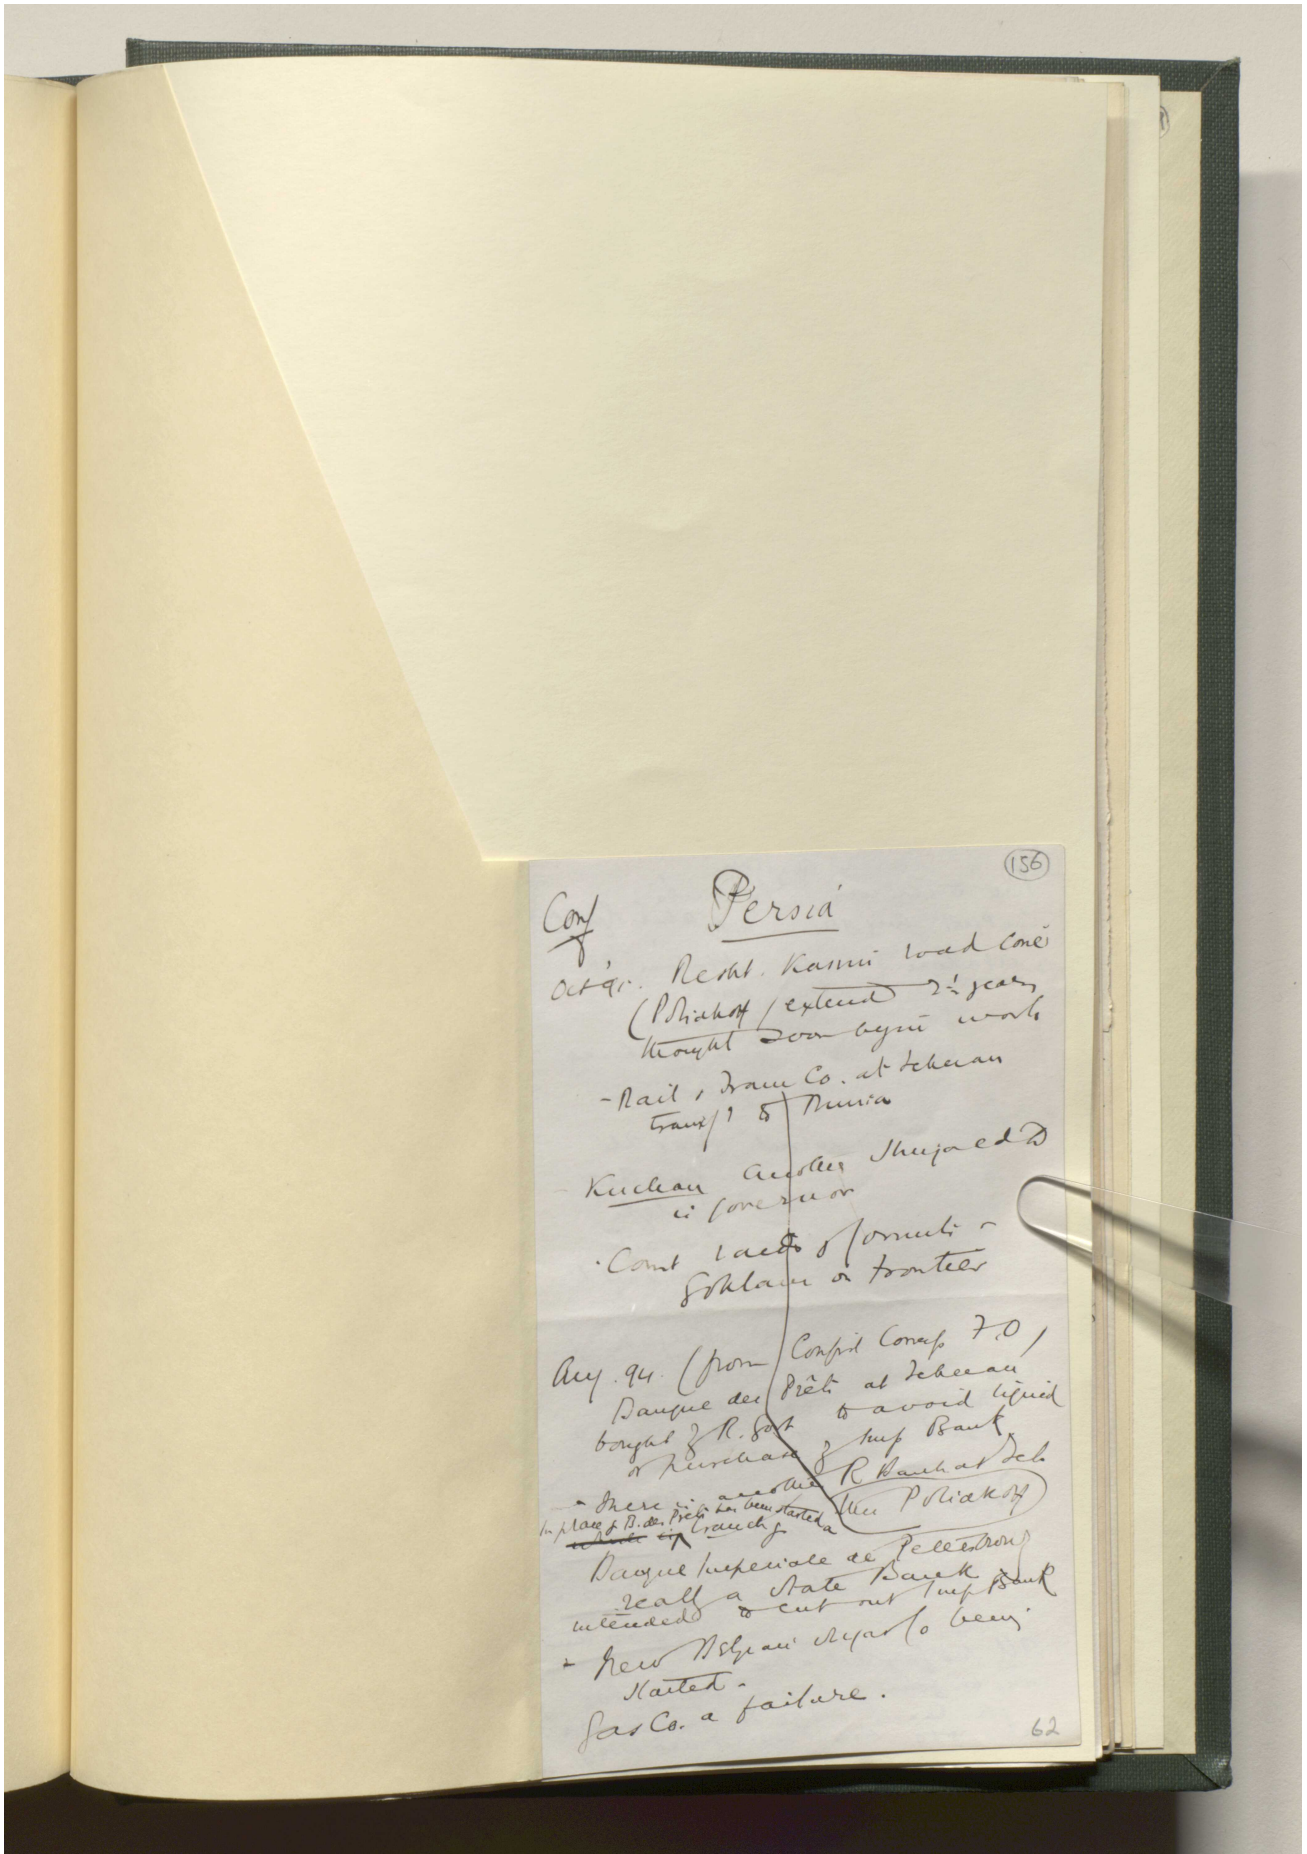 156
Conf Persia
Oct '95. Resht. Kasvin road conc
(Poliakoff) extend 2½ years
thought soon begin work
- Rail & Tram Co. at Teheran
transf d to Russia
Kuchan another Shuja ed D
is governor
Const raids of
Goklans on frontier
Aug. 94. (from Confid Corresp F.O)
Banque des Prêts at Teheran
bought by R. Govt to avoid liquid
or purchase by Imp Bank
- There is another R Bank at Teh
(Poliakoff)
In place of B. des Prêts has been started a
branch of
Banque Imperiale de Petersbourg
really a State Bank
intended to cut out Imp Bank
- New Belgian sugar Co being
started -
Gas Co. a failure.
62